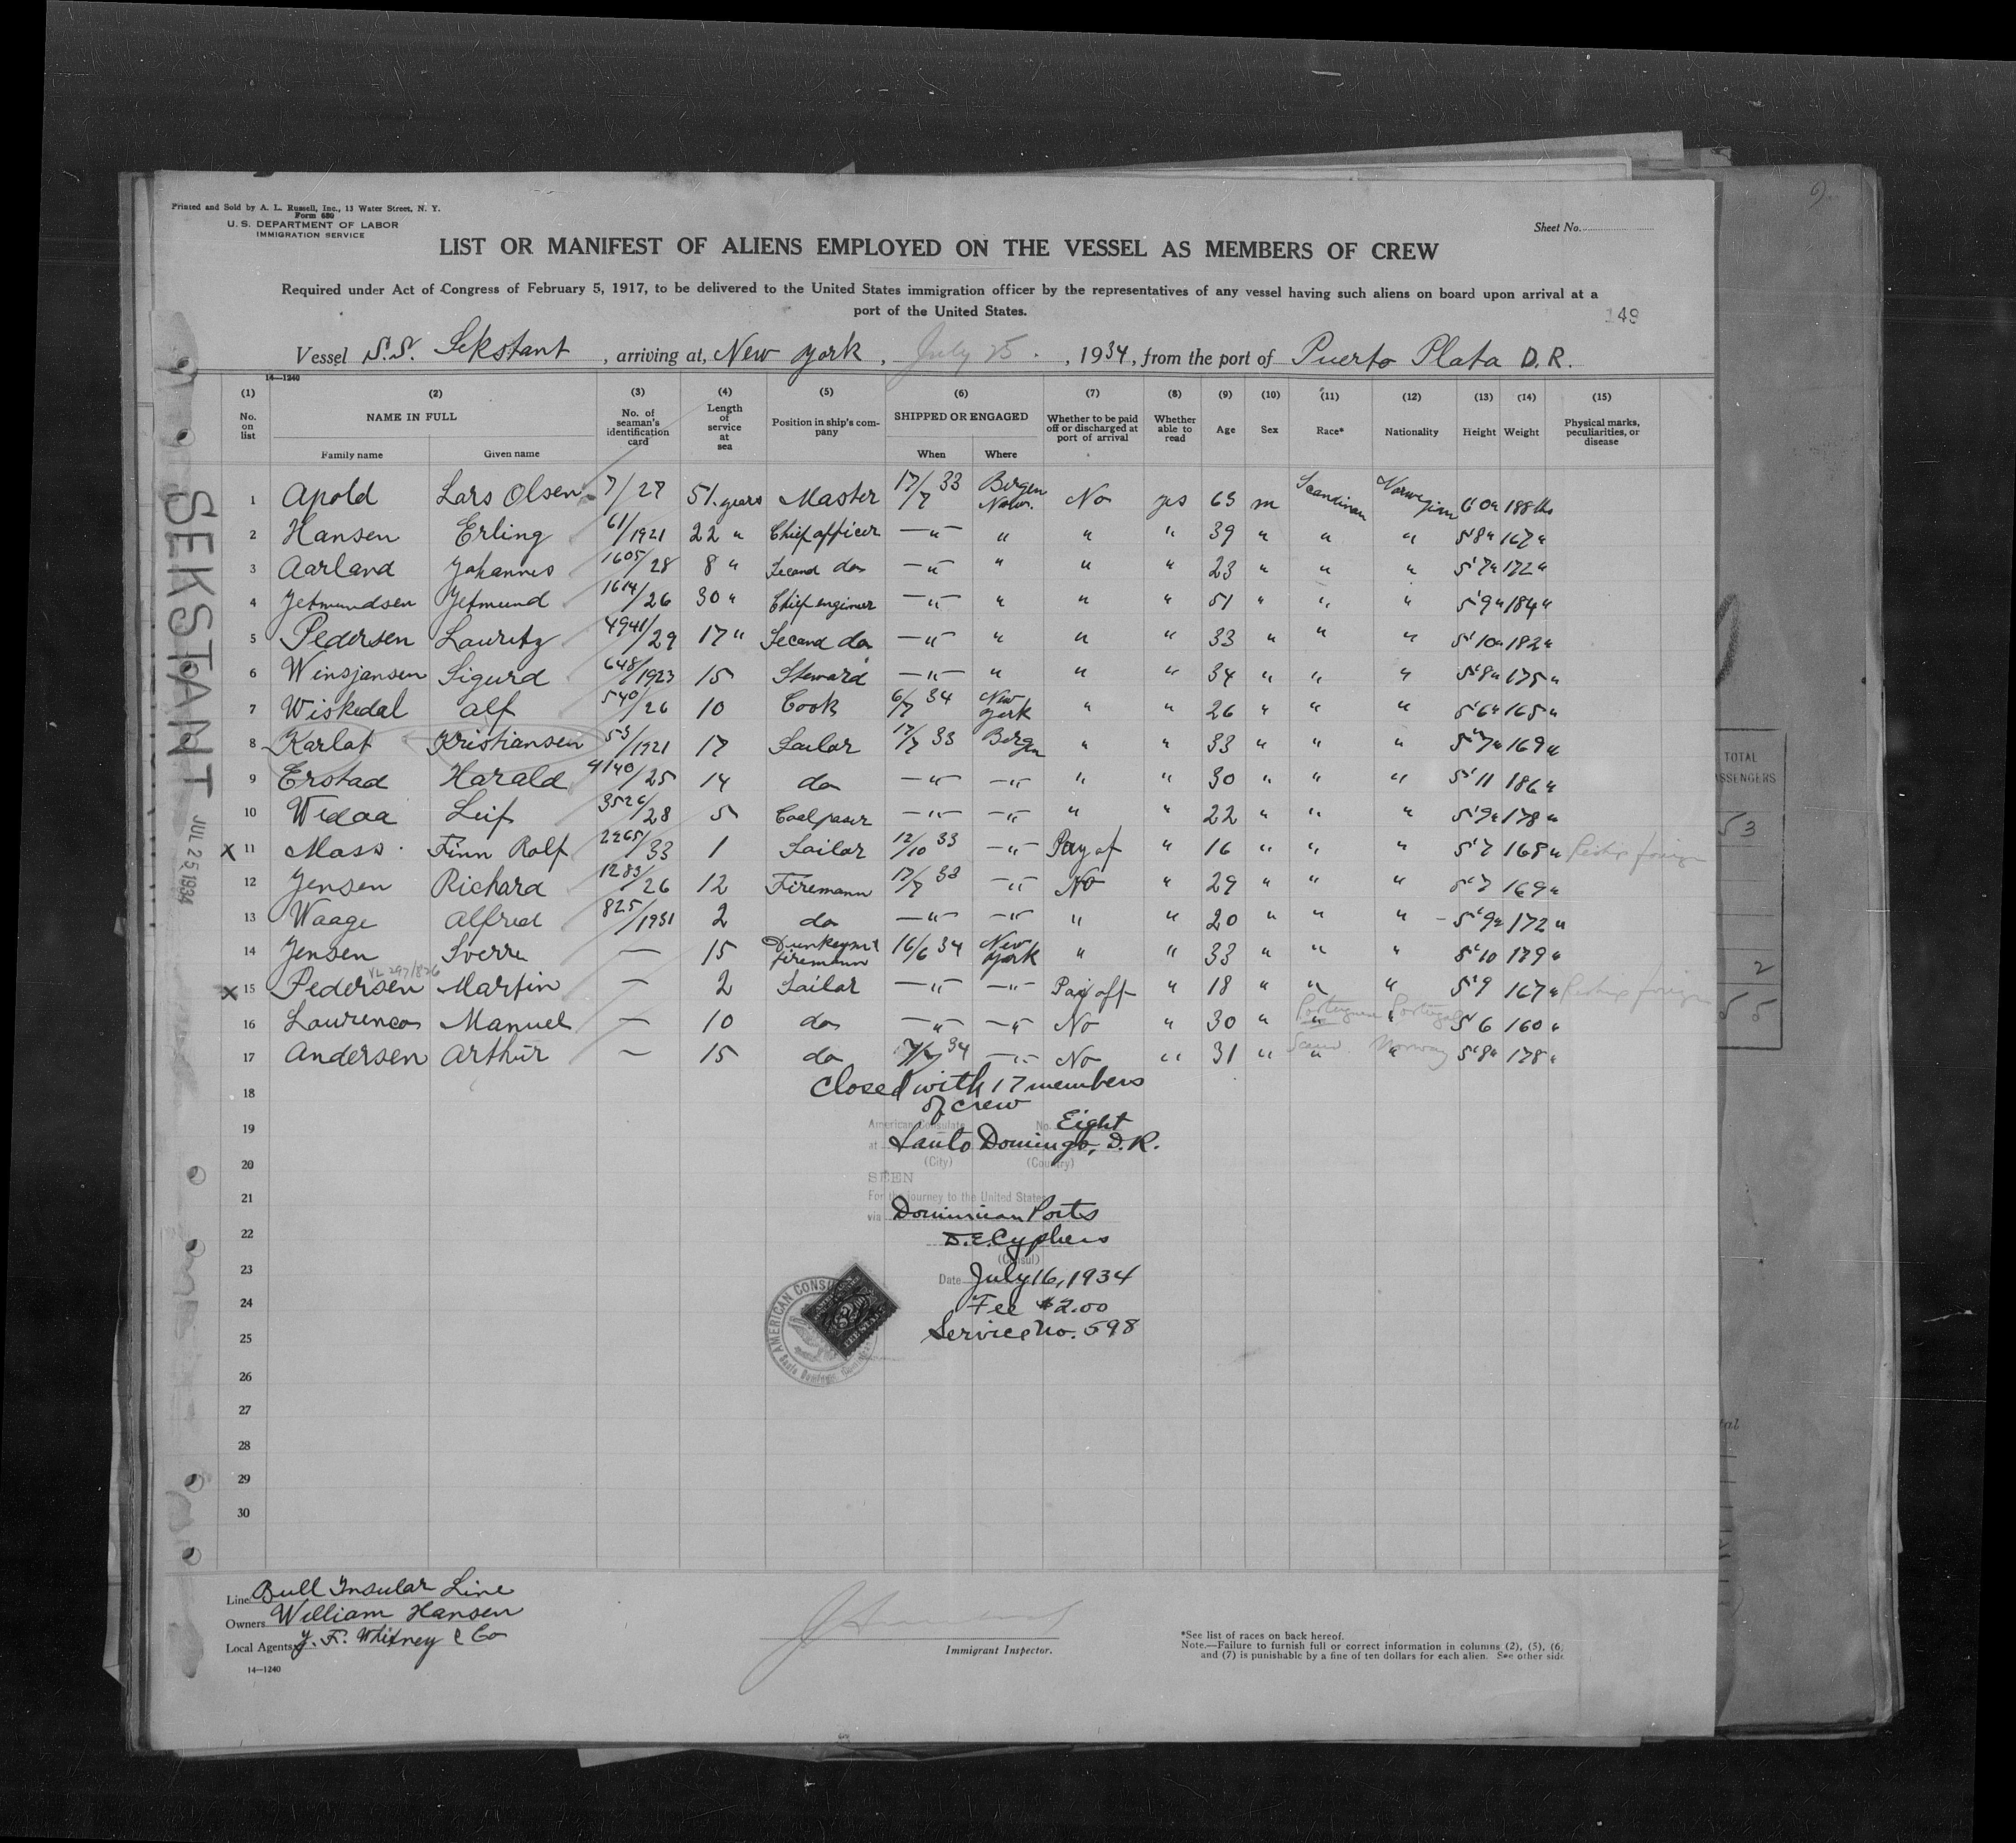 Printed and Sold by A. L. Russell, Inc., 13 Water Street, N. Y.
Form 680
U. S. DEPARTMENT OF LABOR
IMMIGRATION SERVICE
Sheet No.
LIST OR MANIFEST OF ALIENS EMPLOYED ON THE VESSEL AS MEMBERS OF CREW
Required under Act of Congress of February 5, 1917, to be delivered to the United States immigration officer by the representatives of any vessel having such aliens on board upon arrival at a
port of the United States.
149
Vessel S.S. Sekstant, arriving at, New York, July 25., 1934, from the port of Puerto Plata D.R.
14—1240
(1) (2) (3) (4) (5) (6) (7) (8) (9) (10) (11) (12) (13) (14) (15)
No. on list NAME IN FULL No. of seaman's identification card Length of service at sea Position in ship's company SHIPPED OR ENGAGED Whether to be paid off or discharged at port of arrival Whether able to read Age Sex Race* Nationality Height Weight Physical marks, peculiarities, or disease
Family name Given name When Where
1 Apold Lars Olsen 7/27 51 years Master 17/7 33 Bergen Norw. No yes 63 m Scandinavian Norwegian 6 0" 188 lbs
2 Hansen Erling 61/1921 22 " Chief officer —"— " " " 39 " " " 5'8" 167 "
3 Aarland Johannes 1605/28 8 " Second do —"— " " " 23 " " " 5'7" 172 "
4 Jetmundsen Jetmund 1614/26 30 " Chief engineer —"— " " " 51 " " " 5'9" 184 "
5 Pedersen Lauritz 4941/29 17 " Second do —"— " " " 33 " " " 5'10" 182 "
6 Winsjansen Sigurd 648/1923 15 Steward —"— " " " 34 " " " 5'8" 175 "
7 Wiskedal Alf 540/26 10 Cook 6/7 34 New York " " 26 " " " 5'6" 165 "
8 Karlot Kristiansen 53/1921 17 Sailor 17/7 33 Bergen " " 33 " " " 5'7" 169 "
9 Erstad Harald 4140/25 14 do —"— —"— " " 30 " " " 5'11 186 "
10 Wedaa Leif 3526/28 5 Coalpaser —"— —"— " " 22 " " " 5'9" 178 "
X 11 Mass Finn Rolf 2265/33 1 Sailor 12/10 33 —"— Pay of " 16 " " " 5'7 168 "
12 Jensen Richard 1283/26 12 Firemann 17/7 33 —"— No " 29 " " " 5'7 169 "
13 Waage Alfred 825/1931 2 do —"— —"— " " 20 " " " 5'9" 172 "
14 Jensen Sverre — 15 Dunkeym & firemann 16/6 34 New York " " 33 " " " 5'10 179 "
X 15 Pedersen Martin — 2 Sailor —"— —"— Pay off " 18 " " " 5'9 167 "
16 Laurencos Manuel — 10 do —"— —"— No " 30 " Portuguese Portugal 5'6 160 "
17 Andersen Arthur — 15 do 7/7 34 —"— No " 31 " Scand. Norway 5'8" 178 "
18 Closed with 17 members
of crew
19 American Consulate No. Eight
at Santo Domingo, D.R.
20 (City) (Country)
SEEN
21 For the journey to the United States
via Dominican Ports
22 D.E. Cyphers
(Consul)
23 Date July 16, 1934
24 Fee $2.00
25 Service No. 598
AMERICAN CONSU
26
27
28
29
30
SEKSTANT
JUL 25 1934
Line Bull Insular Line
Owners William Hansen
Local Agents J. F. Whitney & Co
14—1240
Immigrant Inspector.
*See list of races on back hereof.
Note.—Failure to furnish full or correct information in columns (2), (5), (6)
and (7) is punishable by a fine of ten dollars for each alien. See other side
TOTAL
53
2
55